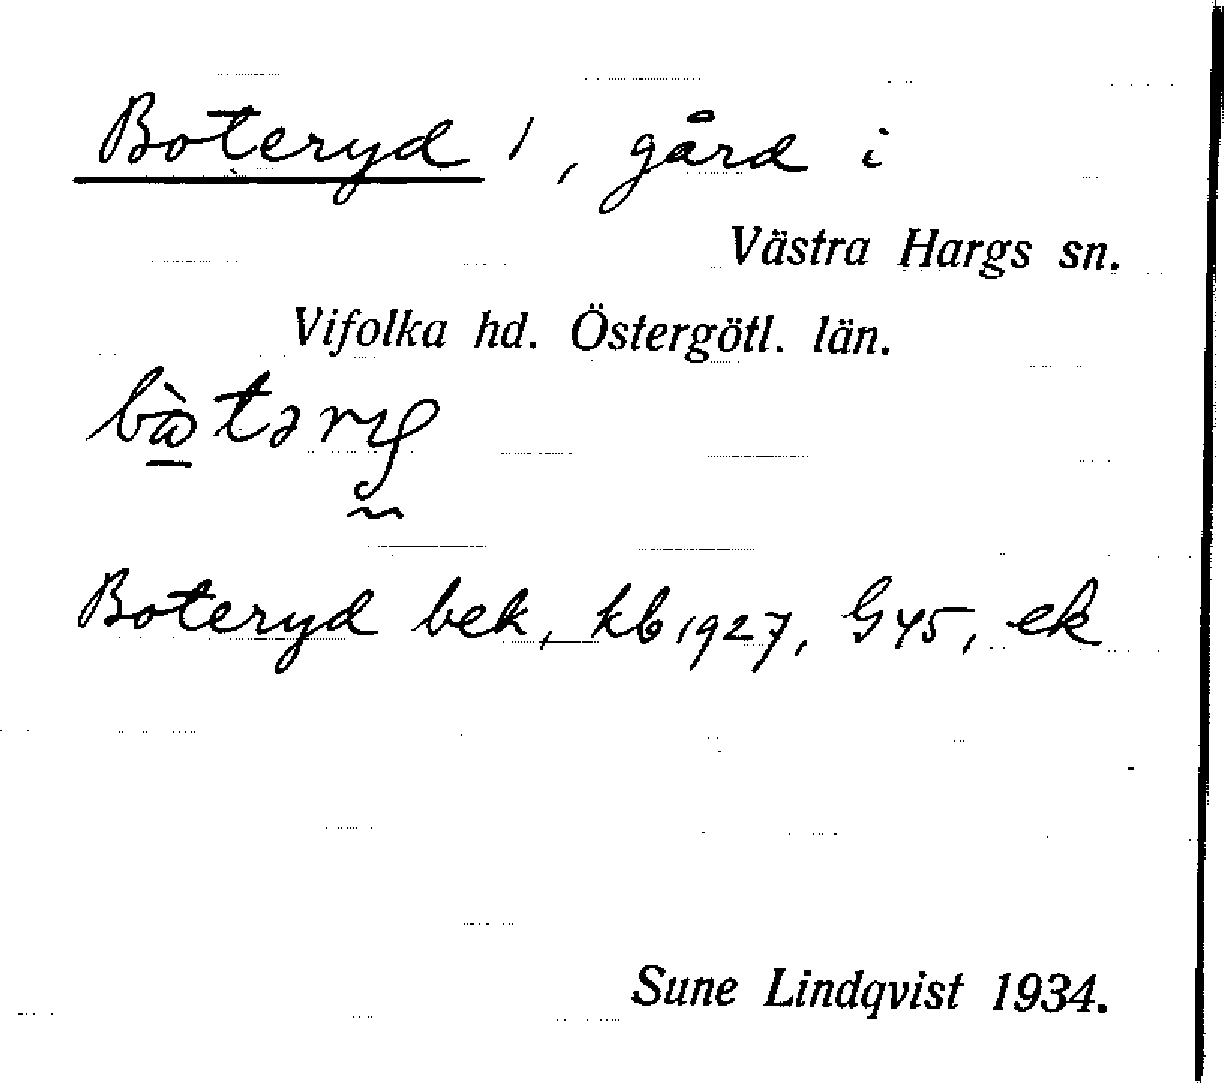 Boteryd 1, gård i
Västra Hargs sn.
Vifolka hd. Östergötl. län.
Boteryd bek, kb 1927, G45, ek
Sune Lindqvist 1934.